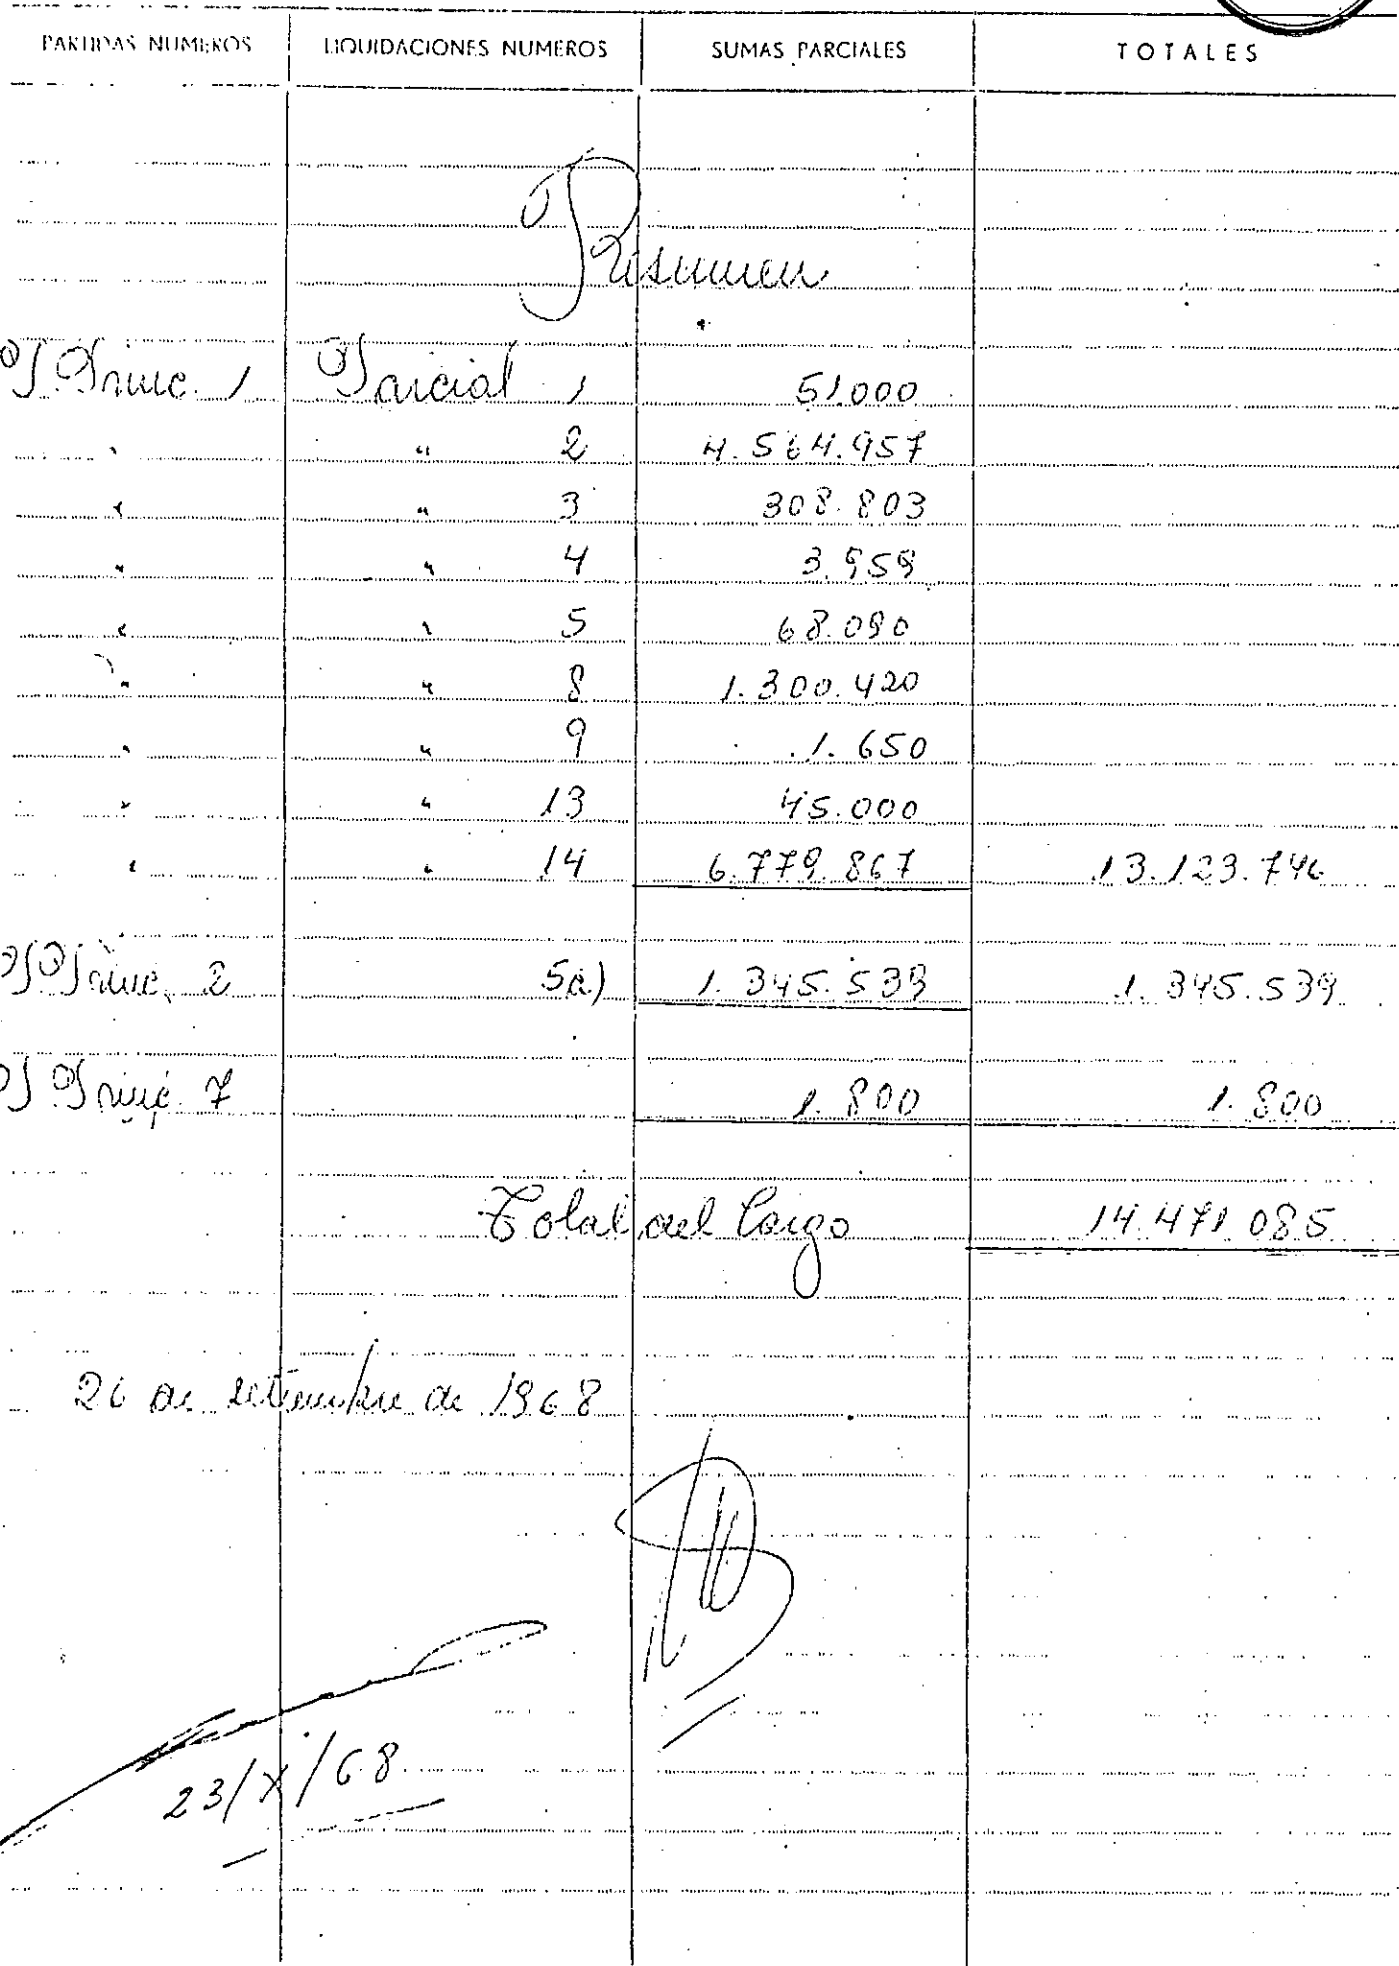 PARTIDAS NUMEROS LIQUIDACIONES NUMEROS SUMAS PARCIALES TOTALES
Resumen
P. Princ. 1 Parcial 1 51.000
" " 2 4.564.957
" " 3 308.803
" " 4 3.959
" " 5 68.090
" " 8 1.300.420
" " 9 1.650
" " 13 45.000
" " 14 6.779.867 13.123.746
P. Princ. 2 5a) 1.345.539 1.345.539
P. Princ. 7 1.800 1.800
Total del Cargo 14.471.085
26 de setiembre de 1968
23/X/68